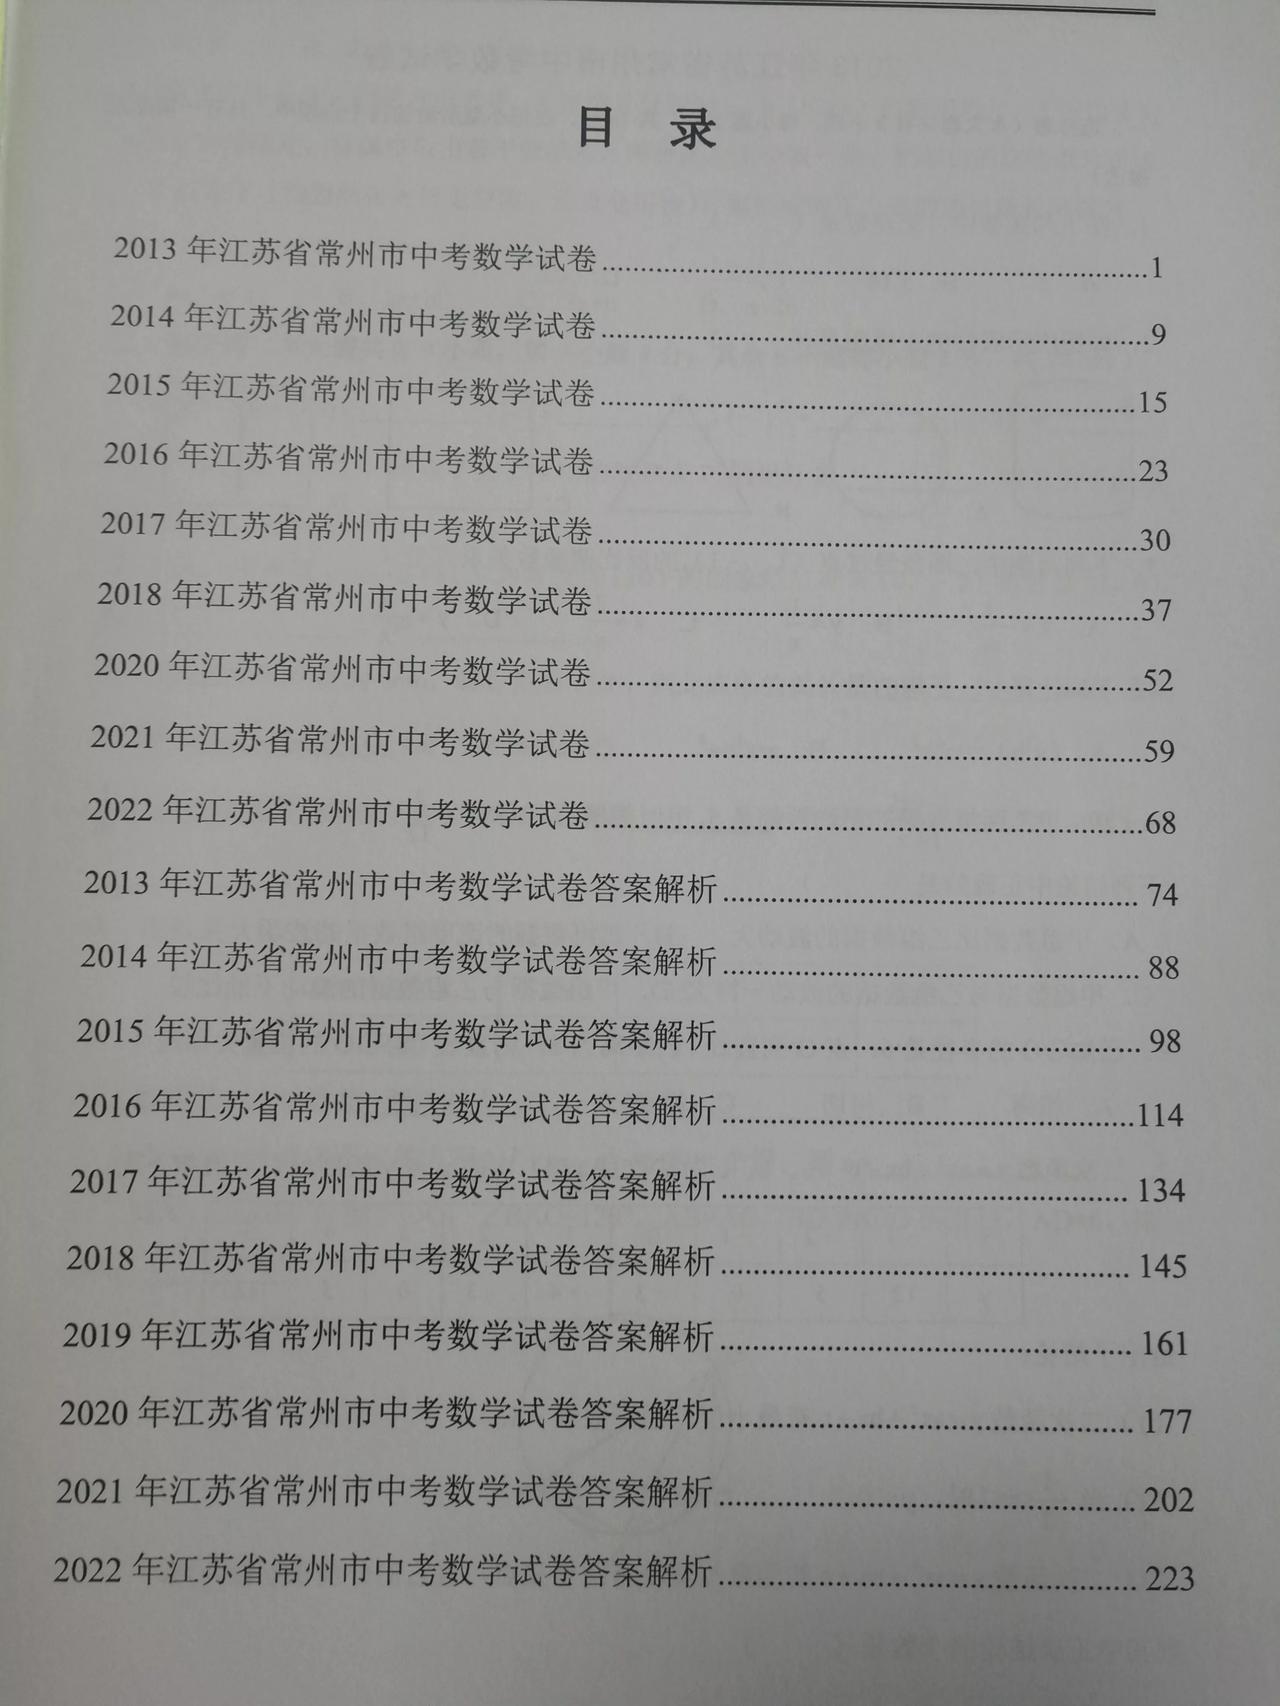 目 录
2013 年江苏省常州市中考数学试卷........................................1
2014 年江苏省常州市中考数学试卷........................................9
2015 年江苏省常州市中考数学试卷........................................15
2016 年江苏省常州市中考数学试卷........................................23
2017 年江苏省常州市中考数学试卷........................................30
2018 年江苏省常州市中考数学试卷........................................37
2020 年江苏省常州市中考数学试卷........................................52
2021 年江苏省常州市中考数学试卷........................................59
2022 年江苏省常州市中考数学试卷........................................68
2013 年江苏省常州市中考数学试卷答案解析.............................. 74
2014 年江苏省常州市中考数学试卷答案解析.............................. 88
2015 年江苏省常州市中考数学试卷答案解析.............................. 98
2016 年江苏省常州市中考数学试卷答案解析..............................114
2017 年江苏省常州市中考数学试卷答案解析.............................. 134
2018 年江苏省常州市中考数学试卷答案解析.............................. 145
2019 年江苏省常州市中考数学试卷答案解析.............................. 161
2020 年江苏省常州市中考数学试卷答案解析.............................. 177
2021 年江苏省常州市中考数学试卷答案解析.............................. 202
2022 年江苏省常州市中考数学试卷答案解析.............................. 223